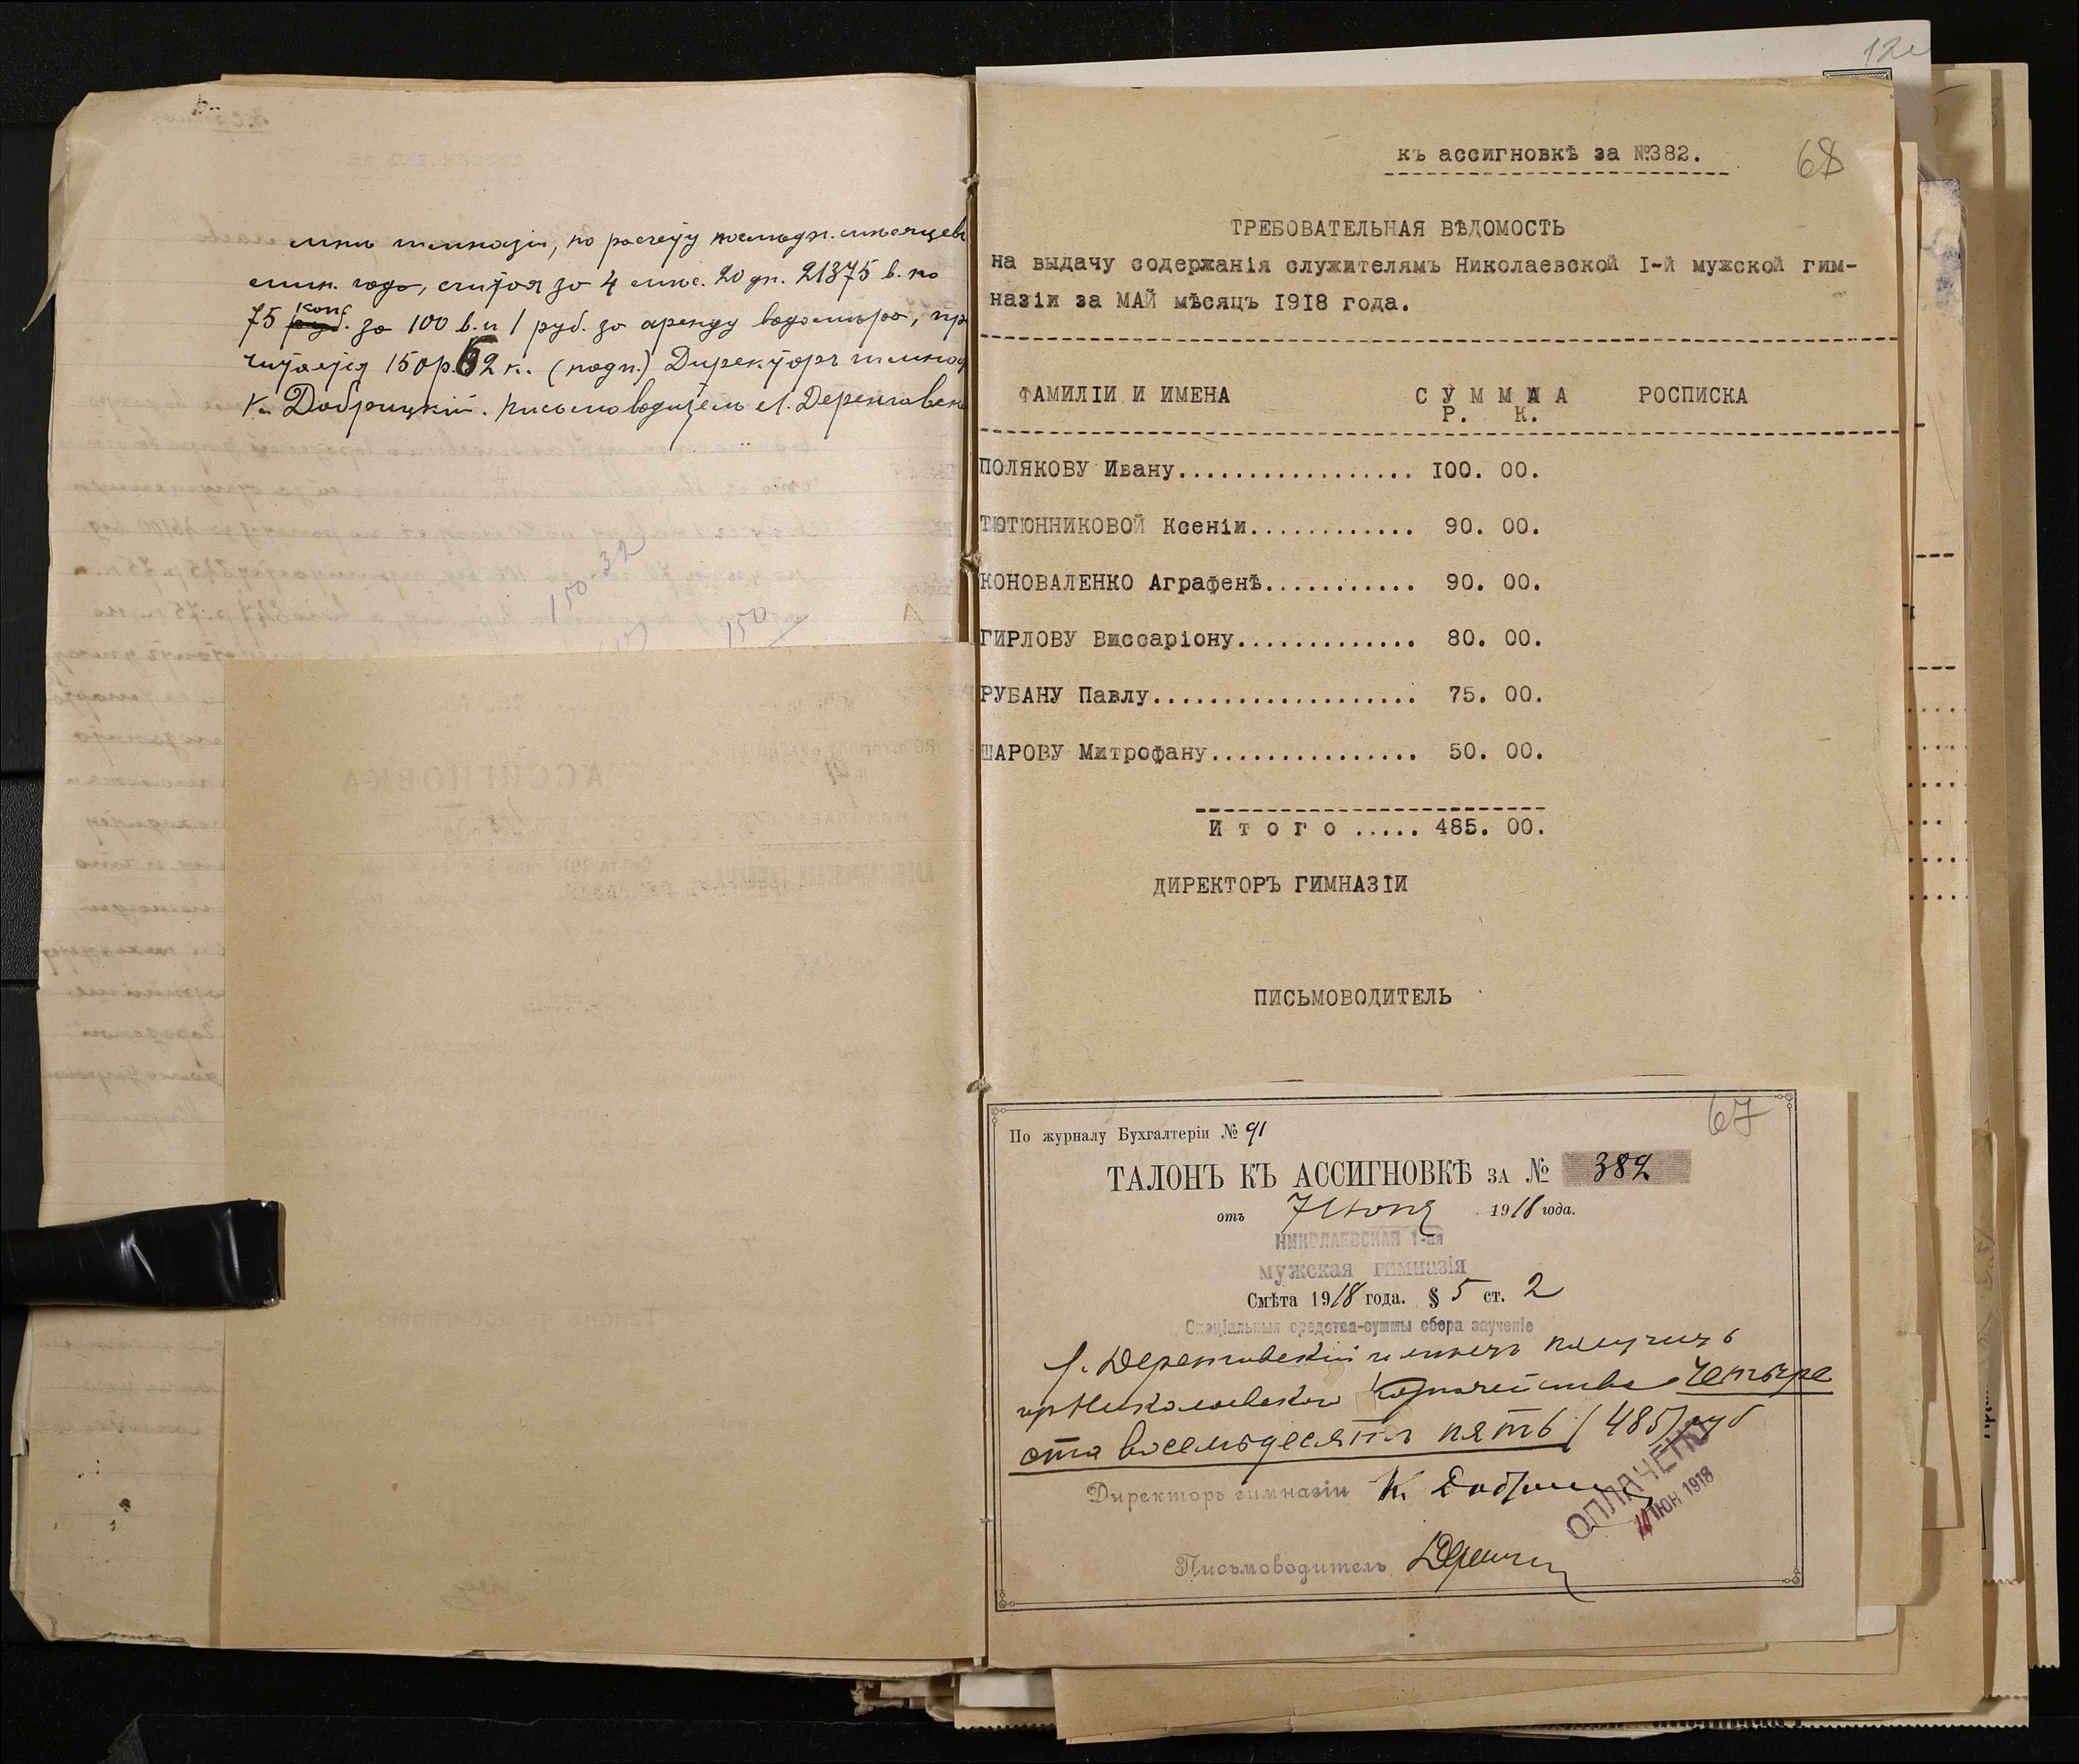 мнъ гимназіи, по расчету последн. мѣсяцевъ
мин. года, считая за 4 мѣс. 20 дн. 21375 в. по
75 коп. за 100 в. и 1 руб. за аренду водомѣра, при
читается 150 р. 62 к. (подп.) Директоръ гимназ
К. Добрицкій. Письмоводитель Л. Деренговск
150-32
150
12
къ ассигновкѣ за №382.
68
ТРЕБОВАТЕЛЬНАЯ ВѢДОМОСТЬ
на выдачу содержанія служителямъ Николаевской I-й мужской гим-
назіи за МАЙ мѣсяцъ 1918 года.
ФАМИЛІИ И ИМЕНА СУММА РОСПИСКА
Р. К.
ПОЛЯКОВУ Ивану.................. 100. 00.
ТЮТЮННИКОВОЙ Ксеніи............ 90. 00.
КОНОВАЛЕНКО Аграфенѣ........... 90. 00.
ГИРЛОВУ Виссаріону............. 80. 00.
РУБАНУ Павлу................... 75. 00.
ШАРОВУ Митрофану............... 50. 00.
Итого ..... 485. 00.
ДИРЕКТОРЪ ГИМНАЗІИ
ПИСЬМОВОДИТЕЛЬ
67
По журналу Бухгалтеріи № 91
ТАЛОНЪ КЪ АССИГНОВКѢ ЗА № 382
отъ 7 Іюня 1918 года.
НИКОЛАЕВСКАЯ 1-ая
мужская гимназія
Смѣта 1918 года. § 5 ст. 2
Спеціальныя средства-суммы сбора заученіе
Л. Деренговскій имѣетъ получить
изъ Николаевскаго Казначейства Четыре
ста восемьдесятъ пять (485) руб
Директоръ гимназіи К. Добриц
ОПЛАЧЕНО
ІЮН 1918
Письмоводитель Дерен